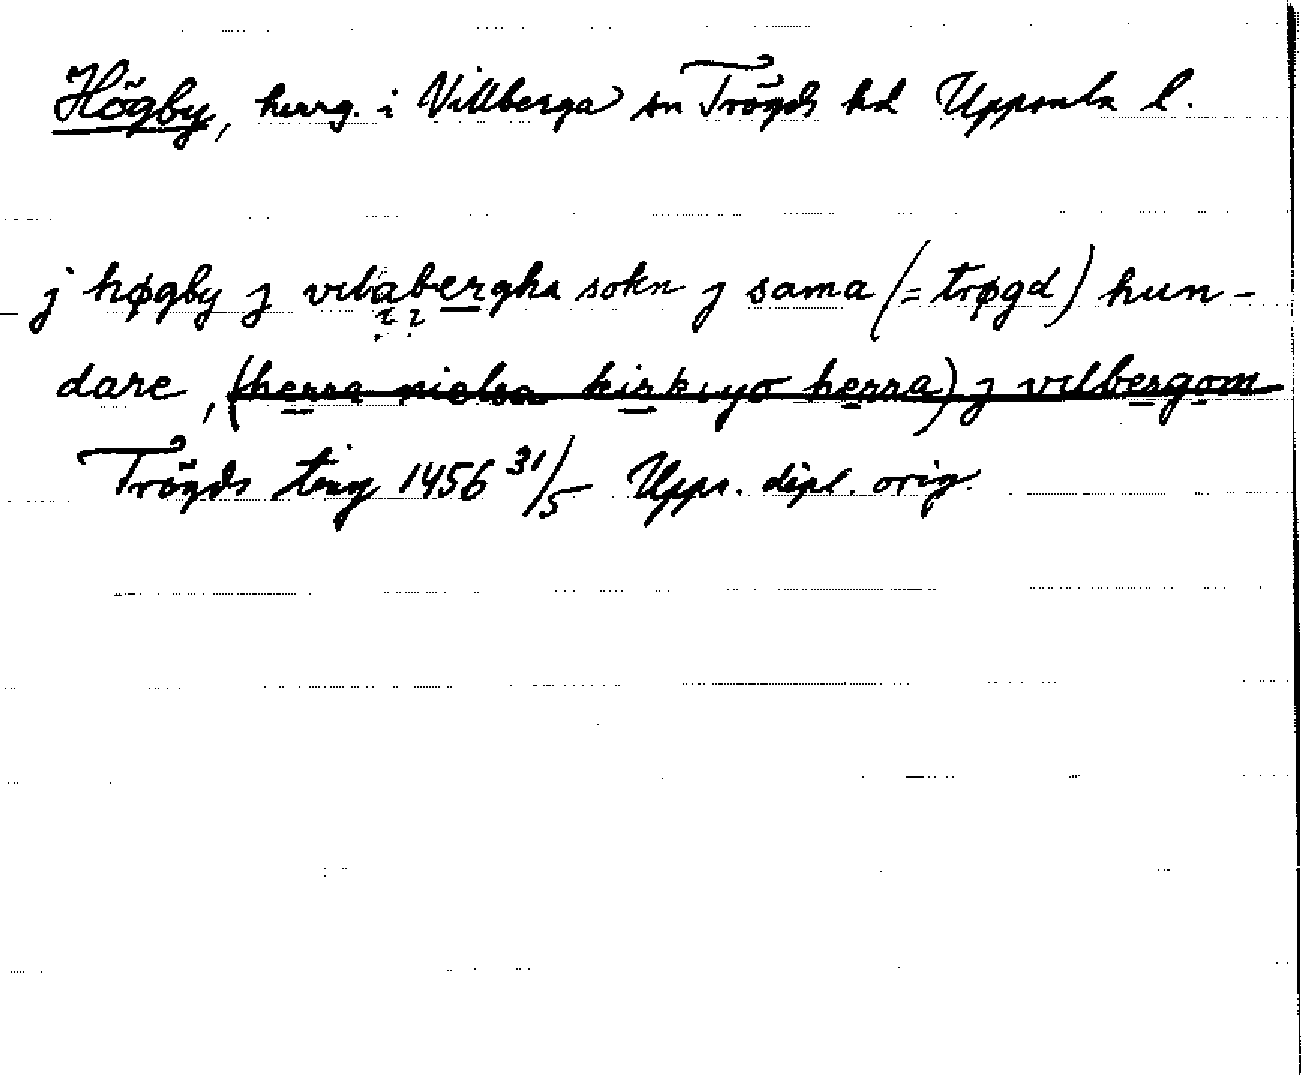 Högby, herrg. i Villberga sn Trögds hd Uppsala l.
j høgby j vilabergha sokn j sama (= trøgd) hun-
dare, (herra nielsa kirkiyo herra) j vilbergom
Trögds ting 1456 31/5 Upps. dipl. orig.